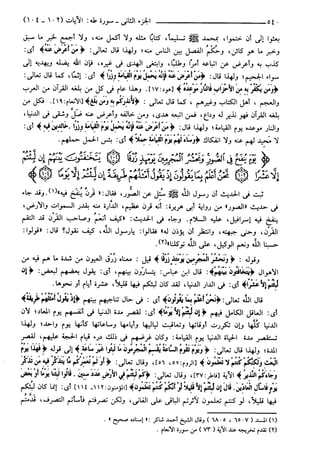 ٥٤٠ الجزء الثاني - سورة طه: الآيات (١٠٢ - ١٠٤)
بعثوا إلى أن ختموا، بمحمد ﷺ تسليماً، كتاباً مثله ولا أكمل منه، ولا أجمع لخبر ما سبق
وخبر ما هو كائن، وحكم الفصل بين الناس منه، ولهذا قال تعالى: ﴿مَنْ أَعْرَضَ عَنْهُ﴾ أي:
كذب به وأعرض عن اتباعه أمراً وطلباً، وابتغى الهدى في غيره، فإن الله يضله ويهديه إلى
سواء الجحيم، ولهذا قال: ﴿مَنْ أَعْرَضَ عَنْهُ فَإِنَّهُ يَحْمِلُ يَوْمَ الْقِيَامَةِ وِزْرًا﴾ أي: إثماً، كما قال تعالى:
﴿وَمَن يَكْفُرْ بِهِ مِنَ الْأَحْزَابِ فَالنَّارُ مَوْعِدُهُ﴾ [هود: ١٧]. وهذا عام في كل من بلغه القرآن من العرب
والعجم، أهل الكتاب وغيرهم، كما قال تعالى: ﴿لِأُنذِرَكُم بِهِ وَمَن بَلَغَ﴾ [الأنعام: ١٩]. فكل من
بلغه القرآن فهو نذير له وداع، فمن اتبعه هدي، ومن خالفه وأعرض عنه ضل وشقي في الدنيا،
والنار موعده يوم القيامة؛ ولهذا قال: ﴿مَنْ أَعْرَضَ عَنْهُ فَإِنَّهُ يَحْمِلُ يَوْمَ الْقِيَامَةِ وِزْرًا. خَالِدِينَ فِيهِ﴾ أي:
لا محيد لهم عنه ولا انفكاك ﴿وَسَاءَ لَهُمْ يَوْمَ الْقِيَامَةِ حِمْلًا﴾ أي: بئس الحمل حملهم.
﴿يَوْمَ يُنفَخُ فِي الصُّورِ وَنَحْشُرُ الْمُجْرِمِينَ يَوْمَئِذٍ زُرْقًا يَتَخَافَتُونَ بَيْنَهُمْ إِن لَّبِثْتُمْ
إِلَّا عَشْرًا نَّحْنُ أَعْلَمُ بِمَا يَقُولُونَ إِذْ يَقُولُ أَمْثَلُهُمْ طَرِيقَةً إِن لَّبِثْتُمْ إِلَّا يَوْمًا﴾
ثبت في الحديث أن رسول الله ﷺ سئل عن الصور، فقال: «قرن ينفخ فيه»(١). وقد جاء
في حديث «الصور» من رواية أبي هريرة: أنه قرن عظيم، الدارة منه بقدر السموات والأرض،
ينفخ فيه إسرافيل، عليه السلام. وجاء في الحديث: «كيف أنعم وصاحب القرن قد التقم
القرن، وحنى جبهته، وانتظر أن يؤذن له» فقالوا: يا رسول الله، كيف نقول؟ قال: «قولوا:
حسبنا الله ونعم الوكيل، على الله توكلنا»(٢).
وقوله: ﴿وَنَحْشُرُ الْمُجْرِمِينَ يَوْمَئِذٍ زُرْقًا﴾ قيل: معناه زرق العيون من شدة ما هم فيه من
الأهوال ﴿يَتَخَافَتُونَ بَيْنَهُمْ﴾ قال ابن عباس: يتسارون بينهم، أي: يقول بعضهم لبعض: ﴿إِن
لَّبِثْتُمْ إِلَّا عَشْرًا﴾ أي: في الدار الدنيا، لقد كان لبثكم فيها قليلاً، عشرة أيام أو نحوها.
قال الله تعالى: ﴿نَّحْنُ أَعْلَمُ بِمَا يَقُولُونَ﴾ أي: في حال تناجيهم بينهم ﴿إِذْ يَقُولُ أَمْثَلُهُمْ طَرِيقَةً﴾
أي: العاقل الكامل فيهم ﴿إِن لَّبِثْتُمْ إِلَّا يَوْمًا﴾ أي: لقصر مدة الدنيا في أنفسهم يوم المعاد؛ لأن
الدنيا كلها وإن تكررت أوقاتها وتعاقبت لياليها وأيامها وساعاتها كأنها يوم واحد؛ ولهذا
تستقصر مدة الحياة الدنيا يوم القيامة: وكان غرضهم في ذلك درء قيام الحجة عليهم، لقصر
المدة؛ ولهذا قال تعالى: ﴿وَيَوْمَ تَقُومُ السَّاعَةُ يُقْسِمُ الْمُجْرِمُونَ مَا لَبِثُوا غَيْرَ سَاعَةٍ﴾ إلى قوله ﴿فَهَذَا يَوْمُ
الْبَعْثِ وَلَكِنَّكُمْ كُنتُمْ لَا تَعْلَمُونَ﴾ [الروم: ٥٥، ٥٦]، وقال تعالى: ﴿أَوَلَمْ نُعَمِّرْكُم مَّا يَتَذَكَّرُ فِيهِ مَن تَذَكَّرَ
وَجَاءَكُمُ النَّذِيرُ﴾ الآية [فاطر: ٣٧]، وقال تعالى: ﴿كَمْ لَبِثْتُمْ فِي الْأَرْضِ عَدَدَ سِنِينَ. قَالُوا لَبِثْنَا يَوْمًا أَوْ بَعْضَ
يَوْمٍ فَاسْأَلِ الْعَادِّينَ. قَالَ إِن لَّبِثْتُمْ إِلَّا قَلِيلًا لَّوْ أَنَّكُمْ كُنتُمْ تَعْلَمُونَ﴾ [المؤمنون: ١١٢، ١١٤] أي: إنما كان لبثكم
فيها قليلاً، لو كنتم تعلمون لآثرتم الباقي على الفاني، ولكن تصرفتم فأسأتم التصرف، قدمتم
(١) المسند (٦٥٠٧ و ٦٨٠٥) وقال الشيخ أحمد شاكر: «إسناده صحيح».
(٢) تقدم تخريجه عند الآية (٧٣) من سورة الأنعام.